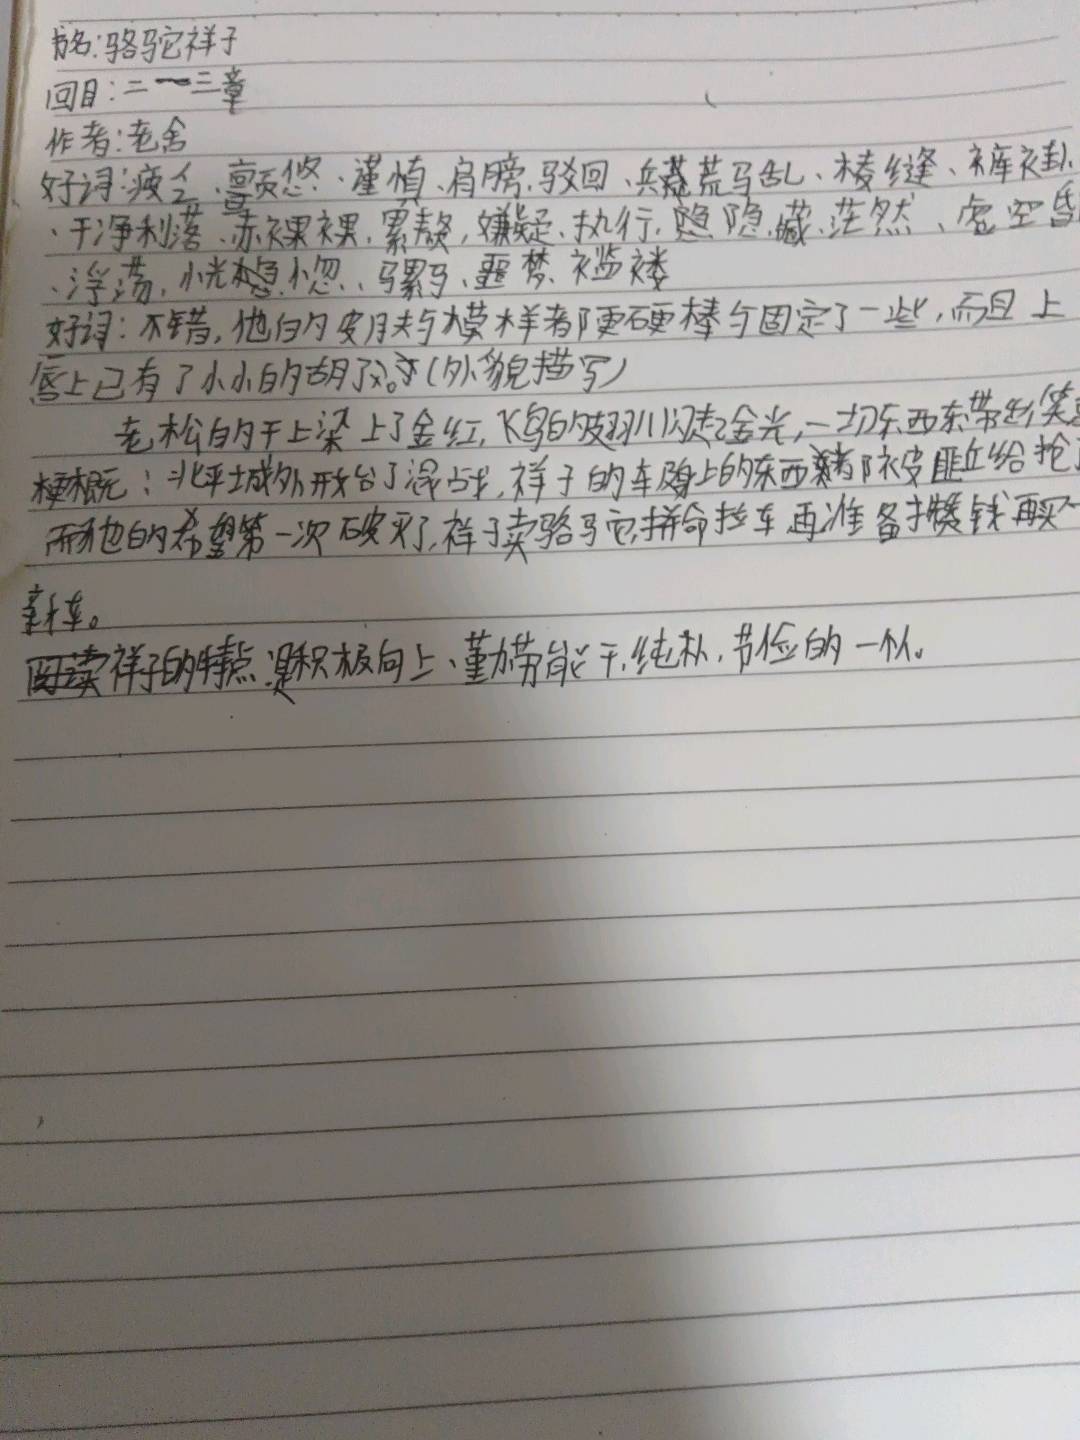 书名:骆驼祥子
回目:二~三章
作者:老舍
好词:疲乏、颤悠、谨慎、肩膀、驳回、兵荒马乱、棱缝、裤褂
、干净利落、赤裸裸,累赘,嫌疑、执行,隐隐,藏、茫然、虚空
、浮荡,恍惚、骡马、噩梦、褴褛
好词:不错,他的皮肤与模样都更硬棒与固定了一些,而且上
唇上已有了小小的胡子。(外貌描写)
老松的干上染上了金红,飞鸟的翅儿闪起金光,一切东西东带出笑
梗概:北平城外形台了混战,祥子的车身上的东西都被匪兵给抢
而他的希望第一次破灭了,祥子卖骆驼,拼命拉车再准备攒钱再买
新车。
祥子的特点是积极向上、勤劳能干,纯朴,节俭的一个人。